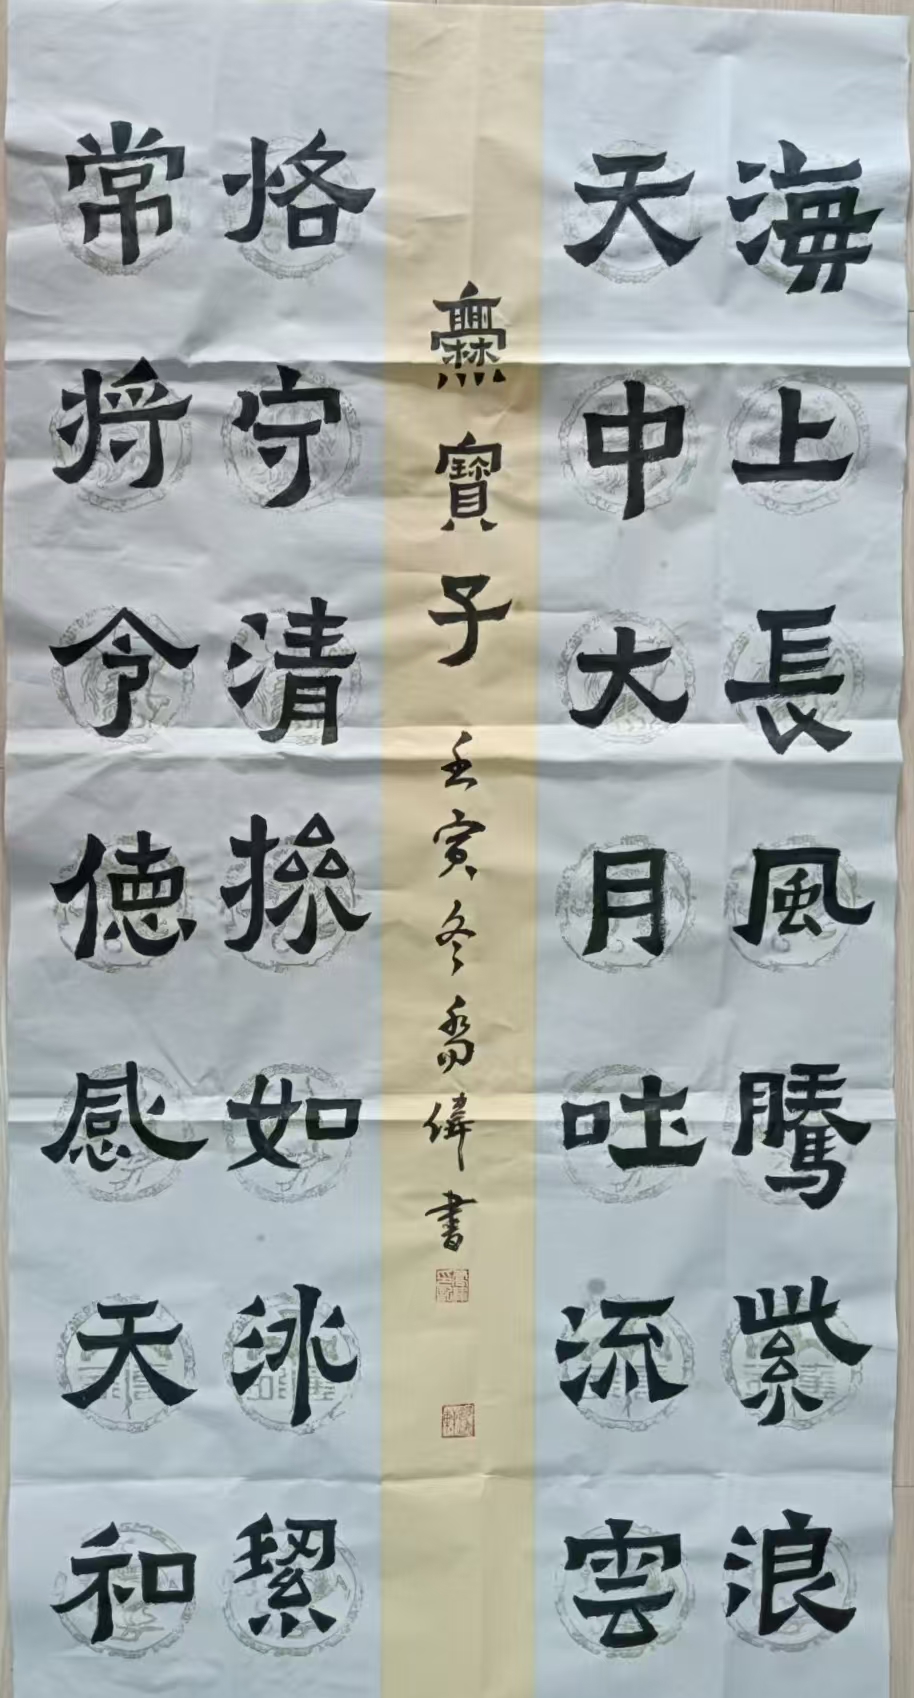 海上長風騰紫浪
天中大月吐流雲
爨寶子 壬寅冬喬偉書
恪守清操如冰絜
常将令德感天和